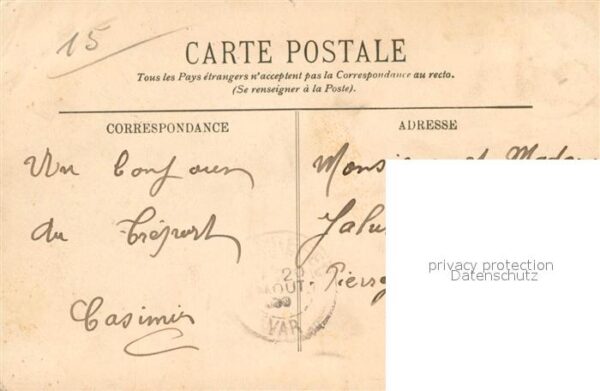 15
CARTE POSTALE
Tous les Pays étrangers n'acceptent pas la Correspondance au recto.
(Se renseigner à la Poste).
CORRESPONDANCE
ADRESSE
Un bonjour
du Tréport
Casimir
Monsieur et Madam
Jalu
Pierre
20
AOUT
VAR
privacy protection
Datenschutz